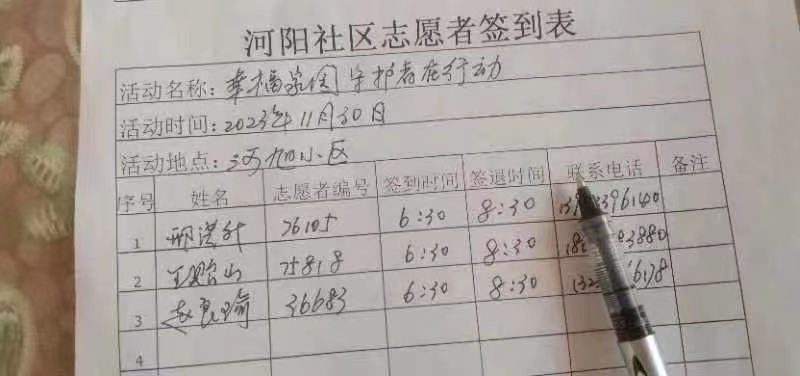 河阳社区志愿者签到表
活动名称：幸福家园守护者在行动
活动时间：2023年11月30日
活动地点：河旭小区
序号 姓名 志愿者编号 签到时间 签退时间 联系电话 备注
1 邢洪升 76105 6:30 8:30
2 王贻山 75818 6:30 8:30 3880
3 赵良瑜 36683 6:30 8:30 6178
4